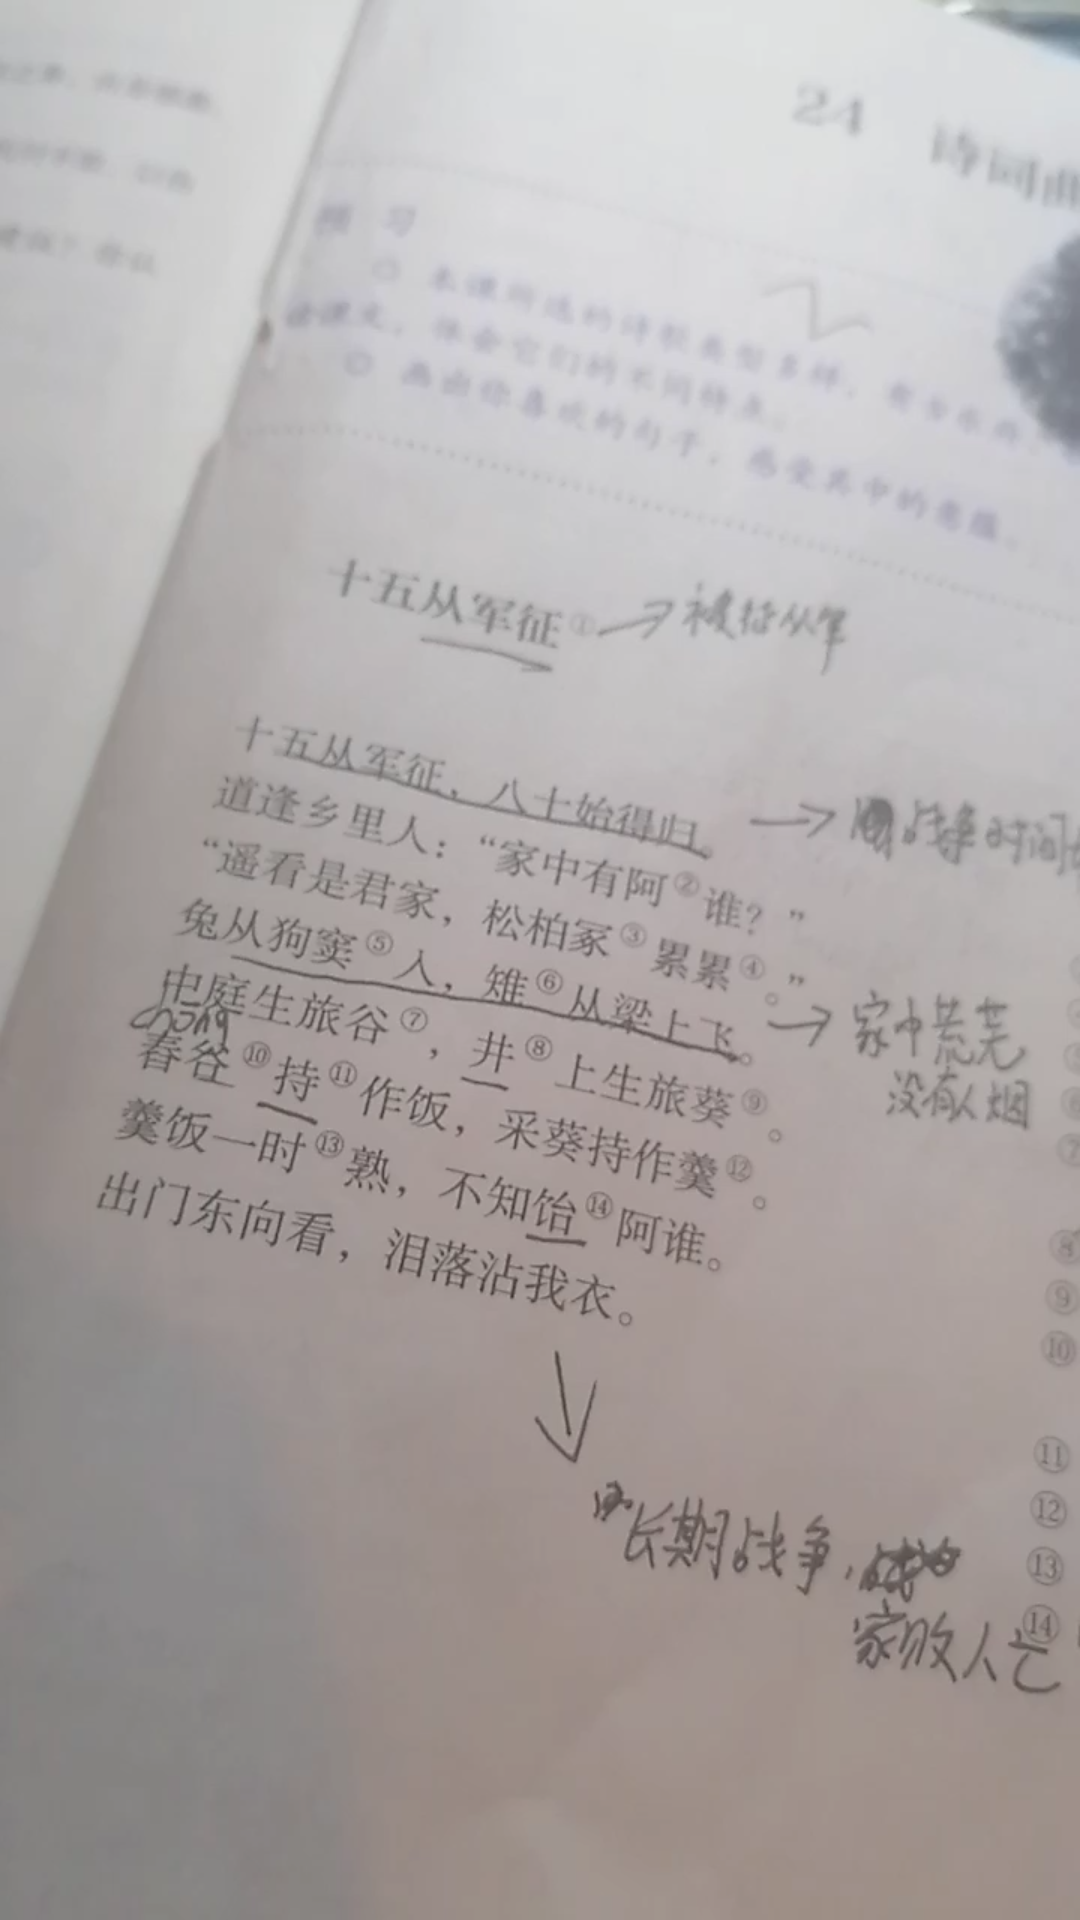 24 诗词曲
预 习
○ 本课所选的诗歌类型多样，有古乐府
读课文，体会它们的不同特点。
○ 画出你喜欢的句子，感受其中的意蕴。
十五从军征① → 被征从军
十五从军征，八十始得归。 → 战争时间
道逢乡里人：“家中有阿②谁？”
“遥看是君家，松柏冢③累累④。”
兔从狗窦⑤入，雉⑥从梁上飞。 → 家中荒芜
没有人烟
中庭生旅谷⑦，井⑧上生旅葵⑨。
舂谷⑩持⑪作饭，采葵持作羹⑫。
羹饭一时⑬熟，不知饴⑭阿谁。
出门东向看，泪落沾我衣。
长期战争，
家败人亡
⑦
⑧
⑨
⑩
⑪
⑫
⑬
⑭